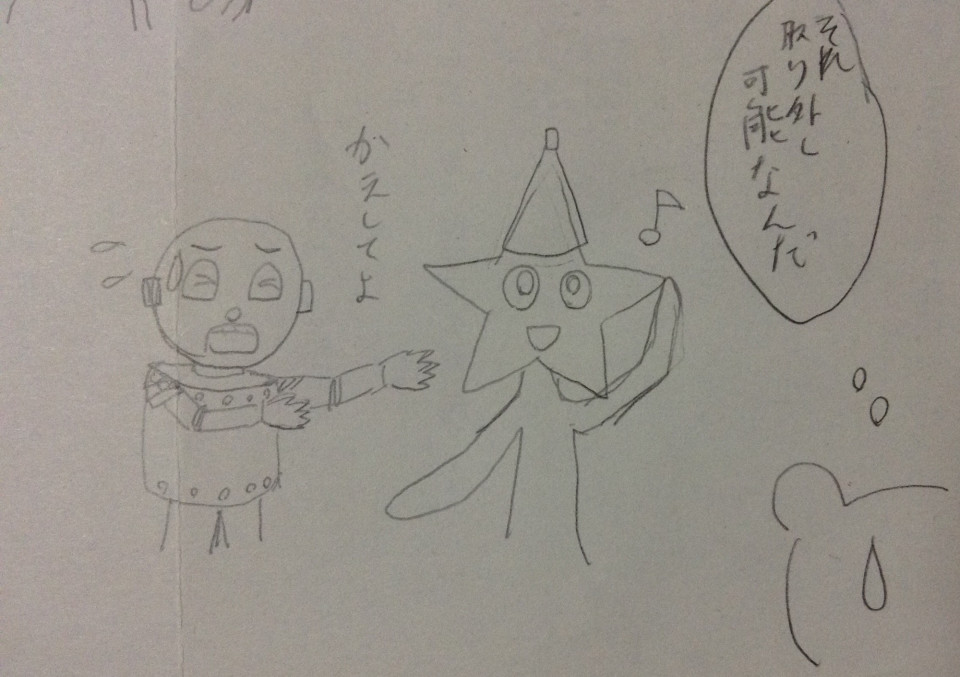 それ
取り外し
可能なんだ
かえしてよ